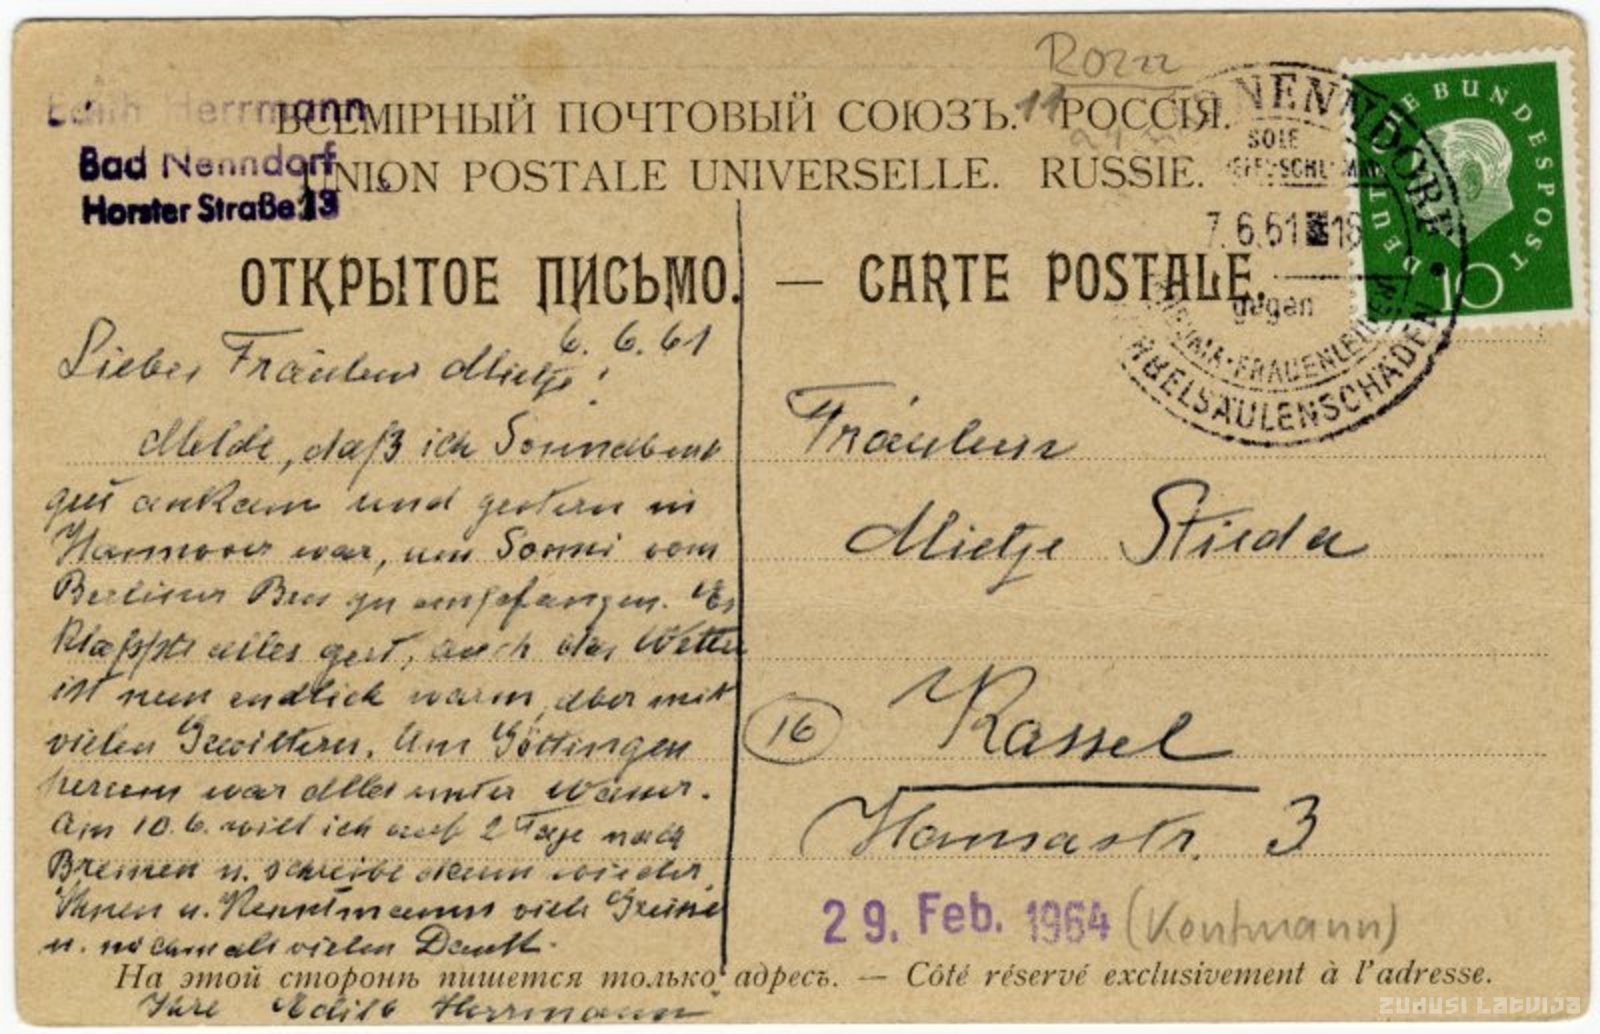 Rozn
Edith Herrmann
Bad Nenndorf
Horster Straße 13
ВСЕМІРНЫЙ ПОЧТОВЫЙ СОЮЗЪ. РОССІЯ.
UNION POSTALE UNIVERSELLE. RUSSIE.
ОТКРЫТОЕ ПИСЬМО. — CARTE POSTALE.
NENNDORF
SOLE
7.6.61 - 18
gegen
RHEUMA-FRAUENLEIDEN
WIRBELSÄULENSCHÄDEN
DEUTSCHE BUNDESPOST
10
6.6.61
Liebes Fräulein Mietje!
Melde, daß ich Sonnabend
gut ankam und gestern in
Hannover war, um Sonni vom
Berliner Bus zu empfangen. Es
klappte alles gut, auch das Wetter
ist nun endlich warm, aber mit
vielen Gewittern. Um Göttingen
herum war alles unter Wasser.
Am 10.6. will ich auf 2 Tage nach
Bremen u. schreibe dann wieder.
Ihnen u. viele Grüsse
u. nochmals vielen Dank.
Ihre Edith Herrmann
Fräulein
Mietje Stieda
16
Kassel
Hansastr. 3
29. Feb. 1964 (Kentmann)
На этой сторонѣ пишется только адресъ. — Côté réservé exclusivement à l'adresse.
ZUDUSI LATVIJA